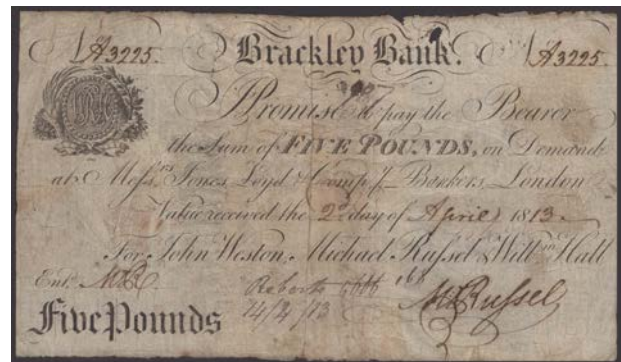 No A3225. Brackley Bank. No A3225.
I Promise to pay the Bearer
the Sum of FIVE POUNDS, on Demand
at Messrs Jones, Loyd & Compy Bankers, London
Value received the 2d day of April 1813.
For John Weston, Michael Russel & Willm Hall
Entd. MR
Five Pounds
14/2/13
M Russel